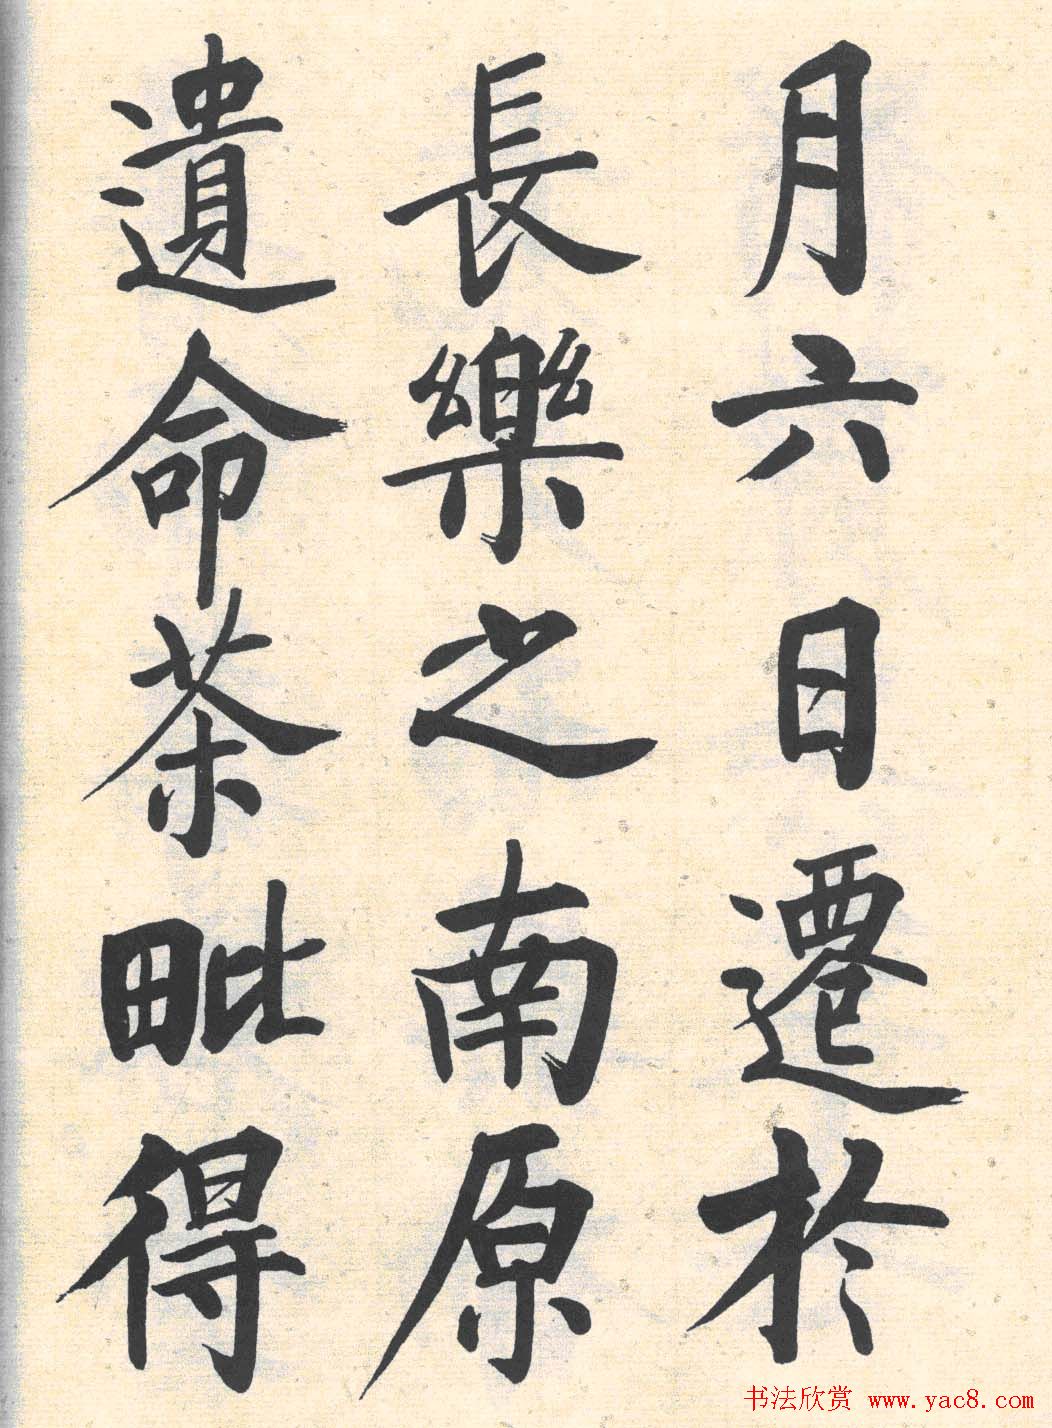 月六日遷於
長樂之南原
遺命茶毗得
书法欣赏 www.yac8.com